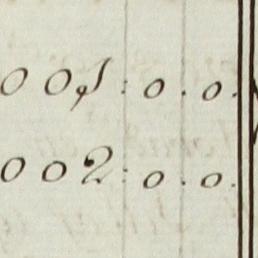 001:0.0.
002:0.0.